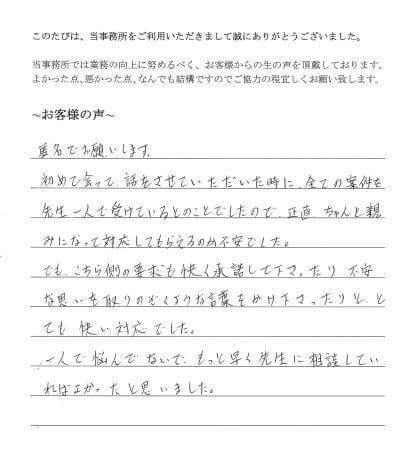 このたびは、当事務所をご利用いただきまして誠にありがとうございました。
当事務所では業務の向上に努めるべく、お客様からの生の声を頂戴しております。
よかった点、悪かった点、なんでも結構ですのでご協力の程宜しくお願い致します。
~お客様の声~
匿名でお願いします。
初めて会って、話をさせていただいた時に、全ての案件を
先生一人で受けているとのことでしたので、正直、ちゃんと親
みになって対応してもらえるのか不安でした。
でも、こちら側の要求も快く承諾して下さったり、不安
な思いを取りのぞくような言葉をかけ下さったりと、と
ても快い対応でした。
一人で悩んでないで、もっと早く先生に相談してい
ればよかったと思いました。